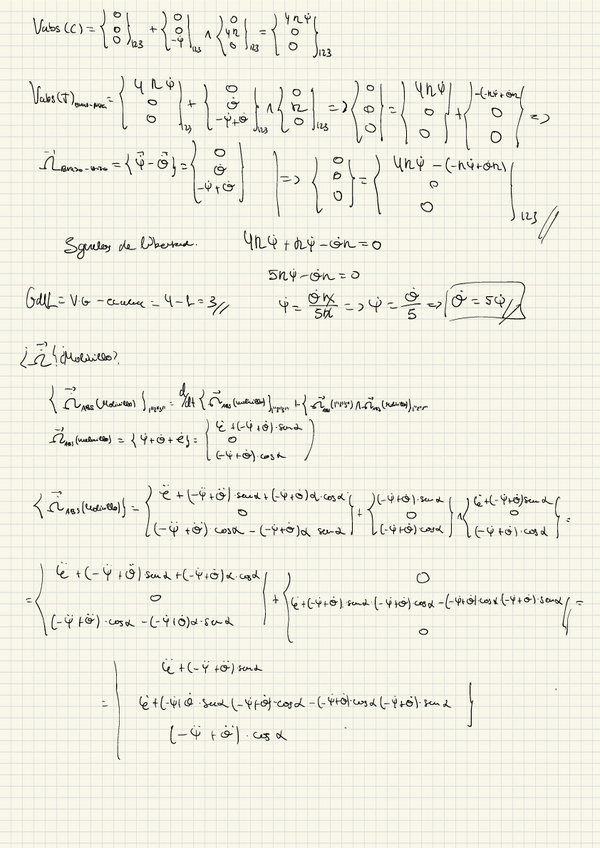 Vabs(C) = {0 0 0}₁₂₃ + {0 0 -ψ̇}₁₂₃ ∧ {0 4R 0}₁₂₃ = {4Rψ̇ 0 0}₁₂₃
Vabs(J) = {4Rψ̇ 0 0}₁₂₃ + {0 θ̇ -ψ̇+θ̇}₁₂₃ ∧ {0 R 0}₁₂₃ => {0 0 0} = {4Rψ̇ 0 0} + {-(-Rψ̇+θ̇R) 0 0} =>
Ω⃗ = {ψ̇⃗ - θ̇⃗} = {0 θ̇ -ψ̇+θ̇} => {0 0 0} = {4Rψ̇ - (-Rψ̇+θ̇R) 0 0}₁₂₃ //
3 grados de libertad. 4Rψ̇ + Rψ̇ - θ̇R = 0
5Rψ̇ - θ̇R = 0
GdL = VG - = 4 - 1 = 3 // ψ̇ = θ̇R/5R => ψ̇ = θ̇/5 => θ̇ = 5ψ̇ //
¿{Ω⃗} Molinillo?
{Ω⃗ABS(Molinillo)} = d/dt {Ω⃗ABS(molinillo)} + {Ω⃗ABS ∧ Ω⃗ABS(Molinillo)}
Ω⃗ABS(molinillo) = {ψ̇+θ̇+φ̇} = {φ̇+(-ψ̇+θ̇)·senα 0 (-ψ̇+θ̇)·cosα}
{Ω⃗ABS(Molinillo)} = {φ̈+(-ψ̈+θ̈)·senα+(-ψ̇+θ̇)α·cosα 0 (-ψ̈+θ̈)cosα-(-ψ̇+θ̇)α senα} + {(-ψ̇+θ̇)·senα 0 (-ψ̇+θ̇)cosα} ∧ {φ̇+(-ψ̇+θ̇)senα 0 (-ψ̇+θ̇)·cosα} =
= {φ̈+(-ψ̈+θ̈)senα+(-ψ̇+θ̇)α·cosα 0 (-ψ̈+θ̈)·cosα-(-ψ̇+θ̇)α·senα} + {0 φ̇+(-ψ̇+θ̇)·senα·(-ψ̇+θ̇)cosα-(-ψ̇+θ̇)cosα(-ψ̇+θ̇)·senα 0} =
= {φ̈+(-ψ̈+θ̈)senα φ̇+(-ψ̇+θ̇·senα(-ψ̇+θ̇)·cosα-(-ψ̇+θ̇)·cosα(-ψ̇+θ̇)·senα (-ψ̈+θ̈)·cosα}